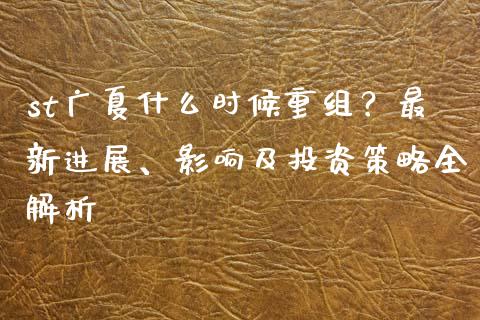 st广夏什么时候重组？最
新进展、影响及投资策略全
解析